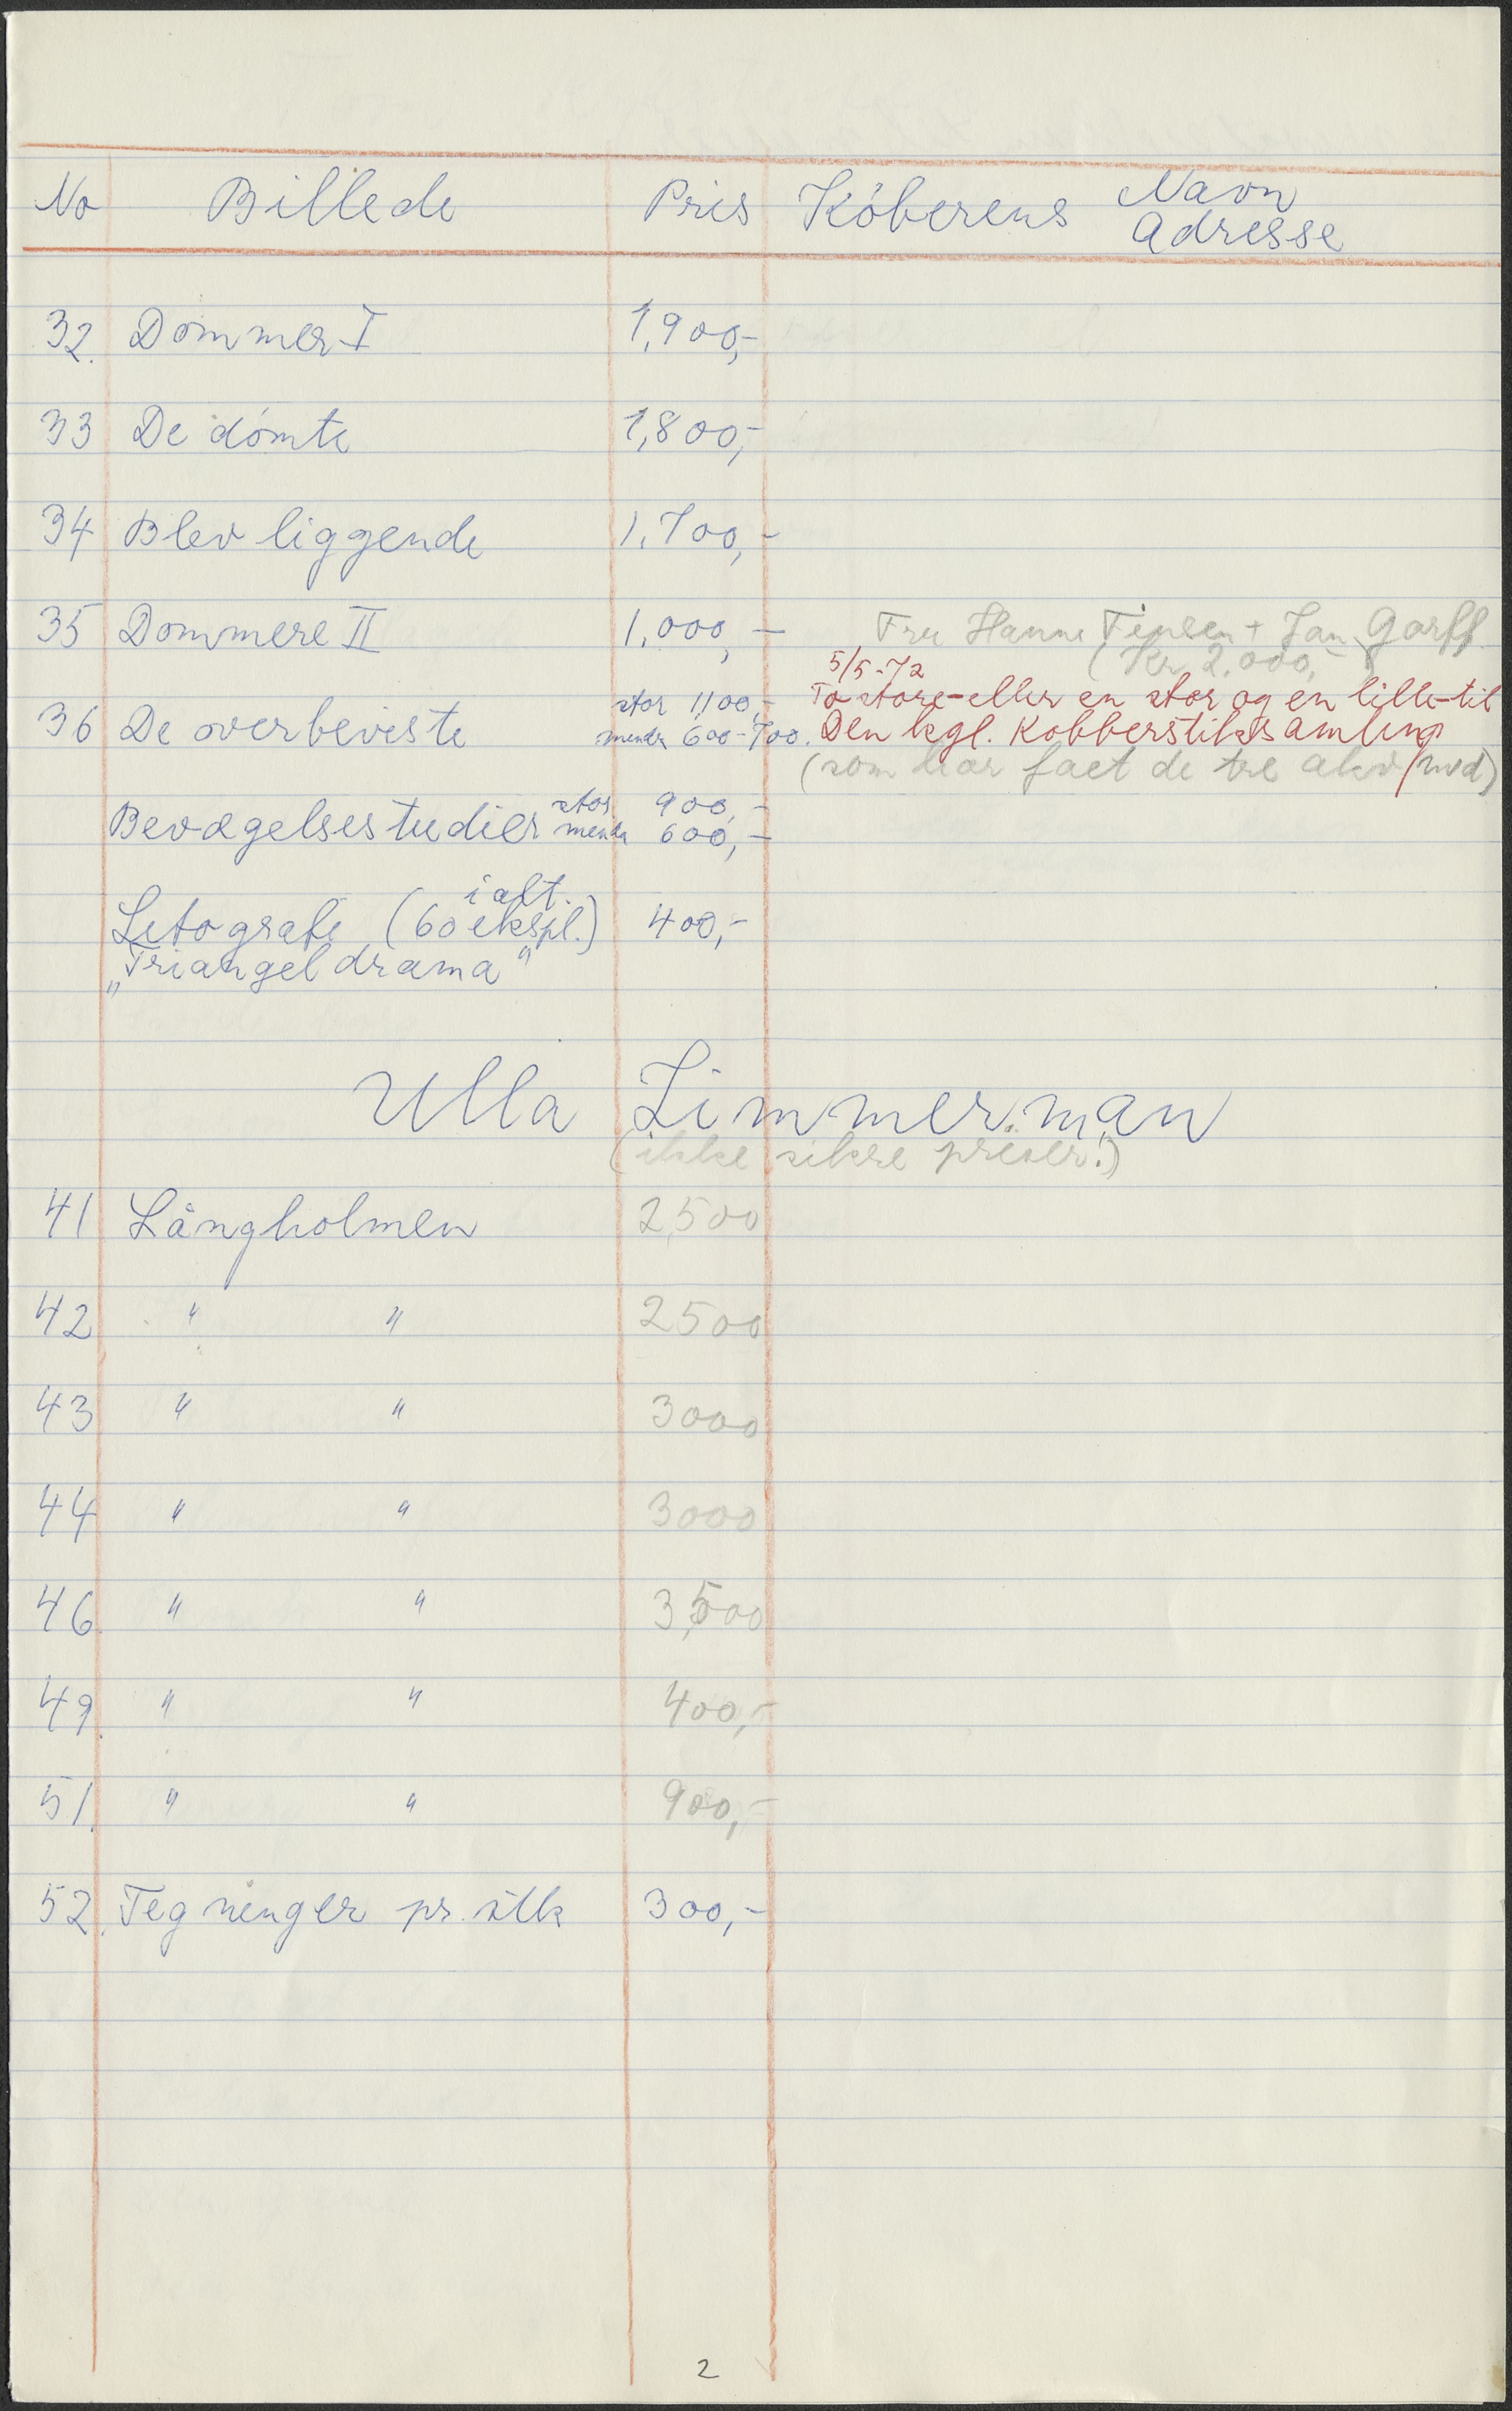 No Billede Pris Köberens Navn
Adresse
32. Dommer I 1,900,-
33 De dömte 1,800,-
34 Blev liggende 1.700,-
35 Dommere II 1.000,- Fru Hanne Finsen + Jan Garff
(Kr 2.000,-
5/5-72
To store-eller en stor og en lille-til
36 De overbeviste stor 1100,-
mindr 600-700. Den kgl. Kobberstiksamling
(som har faet de tre akv/rvd)
Bevægelsestudier stor 900,-
mindr 600,-
ialt.
Litografi (60 ekspl.) 400,-
„Triangeldrama"
Ulla Zimmerman
(ikke sikre priser!)
41 Långholmen 2,500
42 " " 2500
43 " " 3000
44 " " 3000
46 " " 3,500
49. " " 400,-
51. " " 900,-
52. Tegninger pr. stk 300,-
2